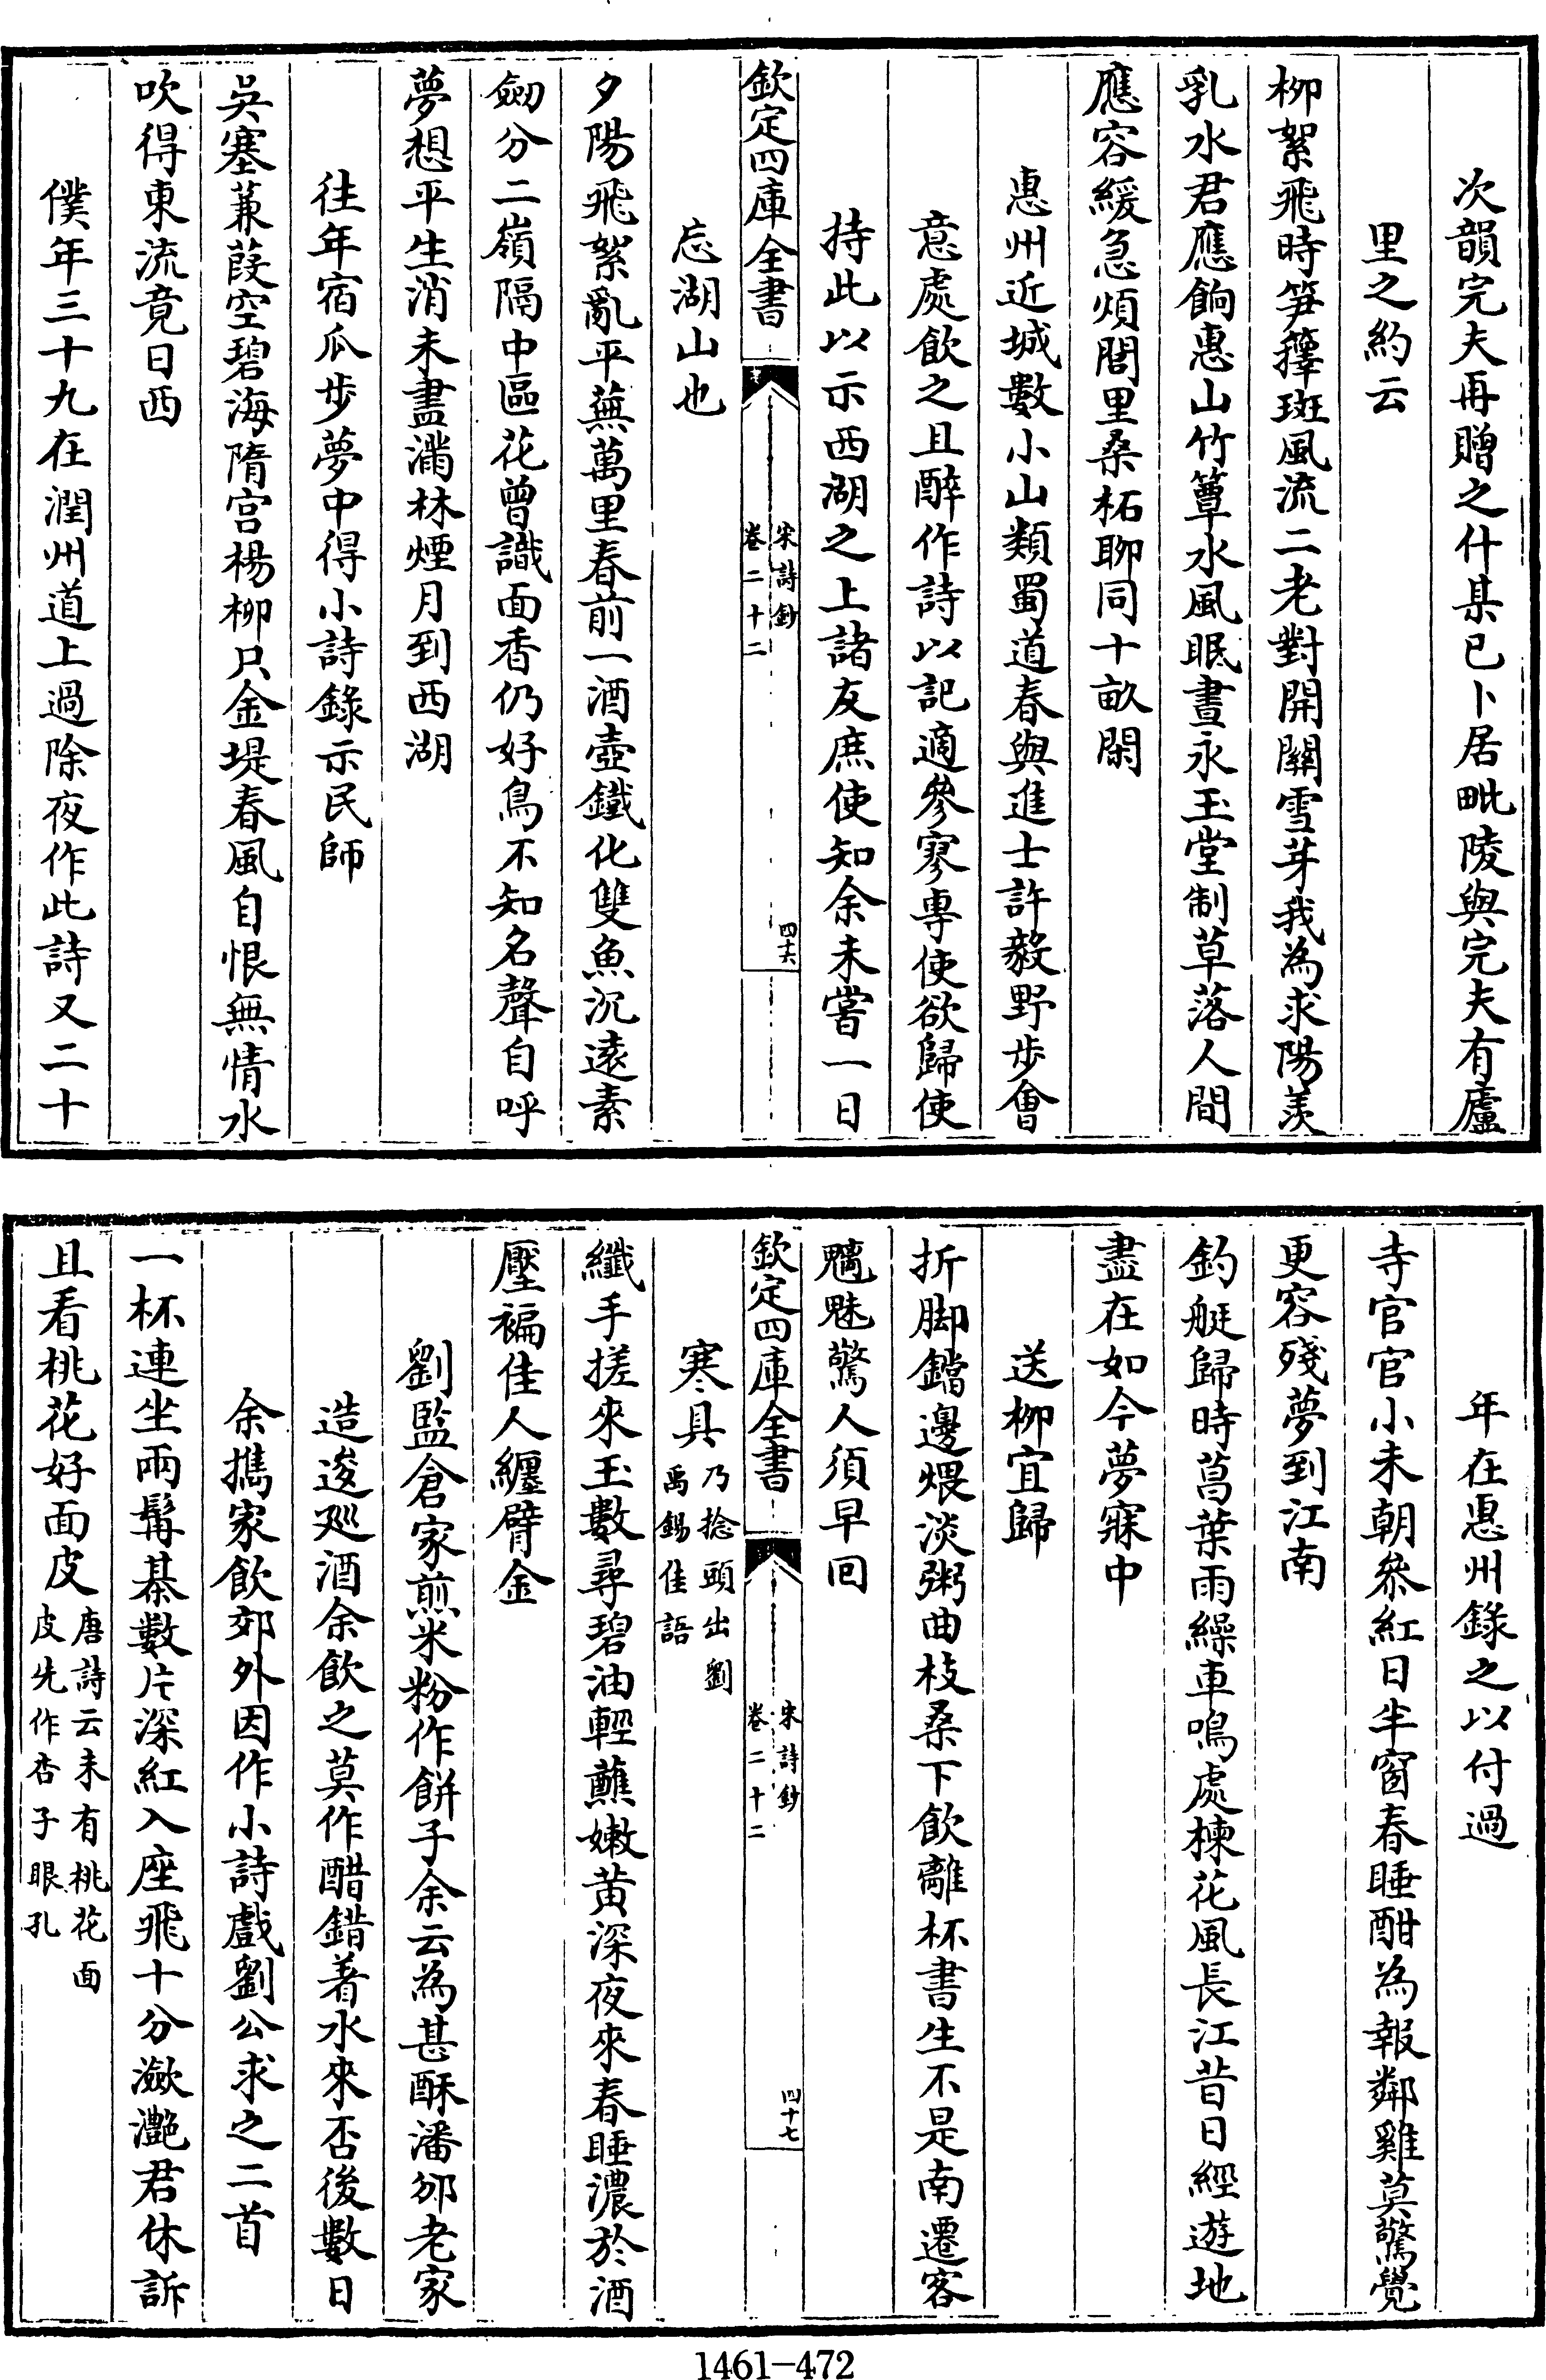 次韻完夫再贈之什某已卜居毗陵與完夫有廬
里之約云
柳絮飛時笋籜斑風流二老對開關雪芽我為求陽羨
乳水君應餉惠山竹簟水風眠晝永玉堂制草落人間
應容緩急煩閭里桑柘聊同十畝閑
惠州近城數小山類蜀道春與進士許毅野步會
意處飲之且醉作詩以記適參寥專使欲歸使
持此以示西湖之上諸友庶使知余未嘗一日
欽定四庫全書
宋詩鈔
卷二十二
四十六
忘湖山也
夕陽飛絮亂平蕪萬里春前一酒壺鐵化雙魚沉遠素
劒分二嶺隔中區花曾識面香仍好鳥不知名聲自呼
夢想平生消未盡滿林煙月到西湖
往年宿瓜步夢中得小詩錄示民師
吳塞蒹葭空碧海隋宮楊柳只金堤春風自恨無情水
吹得東流竟日西
僕年三十九在潤州道上過除夜作此詩又二十
年在惠州錄之以付過
寺官官小未朝參紅日半窗春睡酣為報鄰雞莫驚覺
更容殘夢到江南
釣艇歸時菖葉雨繰車鳴處楝花風長江昔日經遊地
盡在如今夢寐中
送柳宜歸
折脚鐺邊煨淡粥曲枝桑下飲離杯書生不是南遷客
魑魅驚人須早回
欽定四庫全書
宋詩鈔
卷二十二
四十七
寒具乃捻頭出劉
禹錫佳語
纖手搓來玉數尋碧油輕蘸嫩黃深夜來春睡濃於酒
壓褊佳人纏臂金
劉監倉家煎米粉作餅子余云為甚酥潘邠老家
造逡廵酒余飲之莫作醋錯著水來否後數日
余攜家飲郊外因作小詩戲劉公求之二首
一杯連坐兩髯棊數片深紅入座飛十分瀲灧君休訴
且看桃花好面皮唐詩云未有桃花面
皮先作杏子眼孔
1461-472